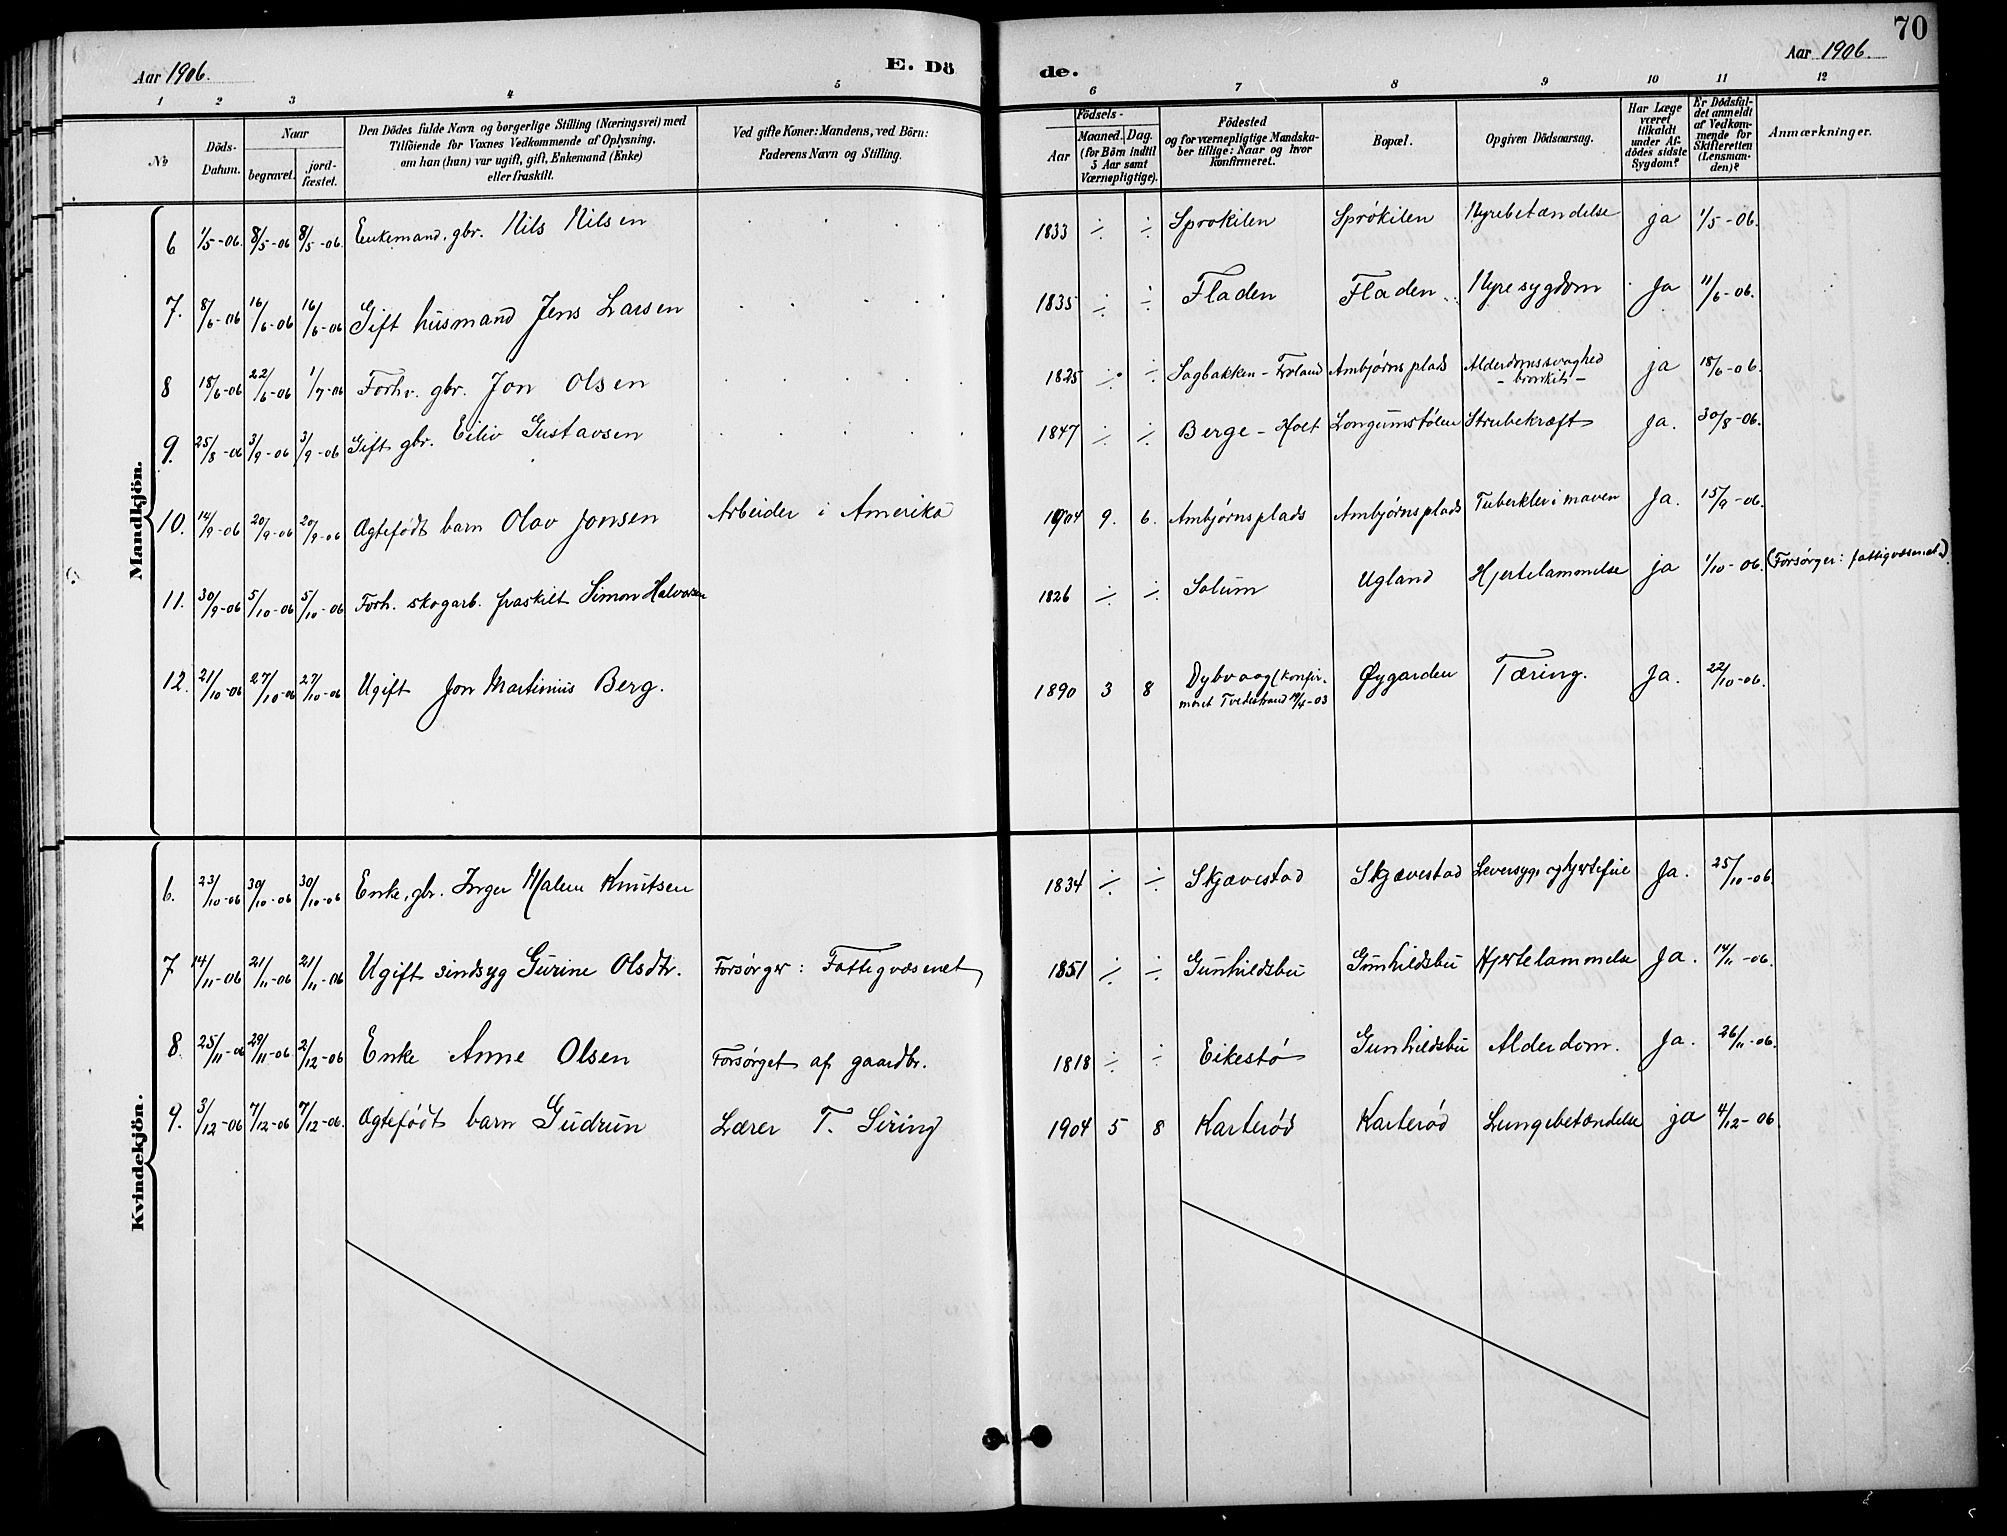 70
Aar 1906.
E. Dö
de.
Aar 1906.
1 2 3 4 5 6 7 8 9 10 11 12
No
Döds-Datum.
Naar
begravet.
jord-fæstet.
Den Dödes fulde Navn og borgerlige Stilling (Næringsvei) med
Tilföiende for Voxnes Vedkommende af Oplysning,
om han (hun) var ugift, gift, Enkemand (Enke)
eller fraskilt.
Ved gifte Koner: Mandens, ved Börn:
Faderens Navn og Stilling.
Födsels-
Aar
Maaned. Dag.
(for Börn indtil
5 Aar samt
Værnepligtige).
Födested
og for værnepligtige Mandska-
ber tillige: Naar og hvor
konfirmeret.
Bopæl.
Opgiven Dödsaarsag.
Har Læge
været
tilkaldt
under Af-
dödes sidste
Sygdom?
Er Dödsfal-
det anmeldt
af Vedkom-
mende for
Skifteretten
(Lensman-
den)?
Anmærkninger.
Mandkjön.
6 1/5-06. 8/5-06 8/5-06. Enkemand, gbr. Nils Nilsen 1833 ÷ ÷ Sprokilen Sprökilen Nyrebetændelse ja 1/5-06.
7. 8/6-06 16/6-06 16/6-06 Gift husmand Jens Larsen 1835 ÷ ÷ Fladen Fladen Nyresygdom Ja 11/6-06.
8 18/6-06 22/6-06 1/7-06 Forhv. gbr. Jon Olsen 1825 ÷ ÷ Sagbakken - Froland Ambjørnsplads Alderdomssvaghed
- bronkit - ja 18/6-06.
9. 25/8-06 3/9-06 3/9-06 Gift gbr. Eiliv Gustavsen 1847 ÷ ÷ Berge - Holt Longumstølen Strubekræft Ja. 30/8-06.
10. 14/9-06 20/9-06 20/9-06 Ægtefødt barn Olav Jonsen Arbeider i Amerika 1904 9. 6. Ambjørnsplads Ambjørnsplads Tuberkler i maven Ja. 15/9-06.
11. 30/9-06 5/10-06 5/10-06 Forh. skogarb. fraskilt Simon Halvorsen 1826 ÷ ÷ Solum Ugland Hjertelammelse ja 1/10-06. (Forsørger: fattigvæsenet).
12. 21/10-06 27/10-06 27/10-06 Ugift Jon Martinius Berg. 1890 3 8 Dybvaag (konfir-
meret Tvedestrand /4-03 Øygarden Tæring. Ja. 22/10-06.
Kvindekjön.
6. 23/10-06 30/10-06 30/10-06 Enke, gbr. Inger Malene Knutsen 1834 ÷ ÷ Skjævestad Skjævestad Leversyge og hjertefeil Ja. 25/10-06.
7 14/11-06 21/11-06 21/11-06 Ugift sindsyg Gurine Olsdtr. Forsørger: Fattigvæsenet 1851 ÷ ÷ Gunhildsbu Gunhildsbu Hjertelammelse Ja. 14/11-06.
8. 25/11-06 29/11-06. 2/12-06 Enke Anne Olsen Forsørget af gaardbr. 1818 ÷ ÷ Eikestø Gunhildsbu Alderdom. Ja. 26/11-06.
9. 3/12-06 7/12-06 7/12-06. Ægtefødt barn Gudrun Lærer T. Siring 1904 5 8 Karterød Karterød Lungebetændelse ja 4/12-06